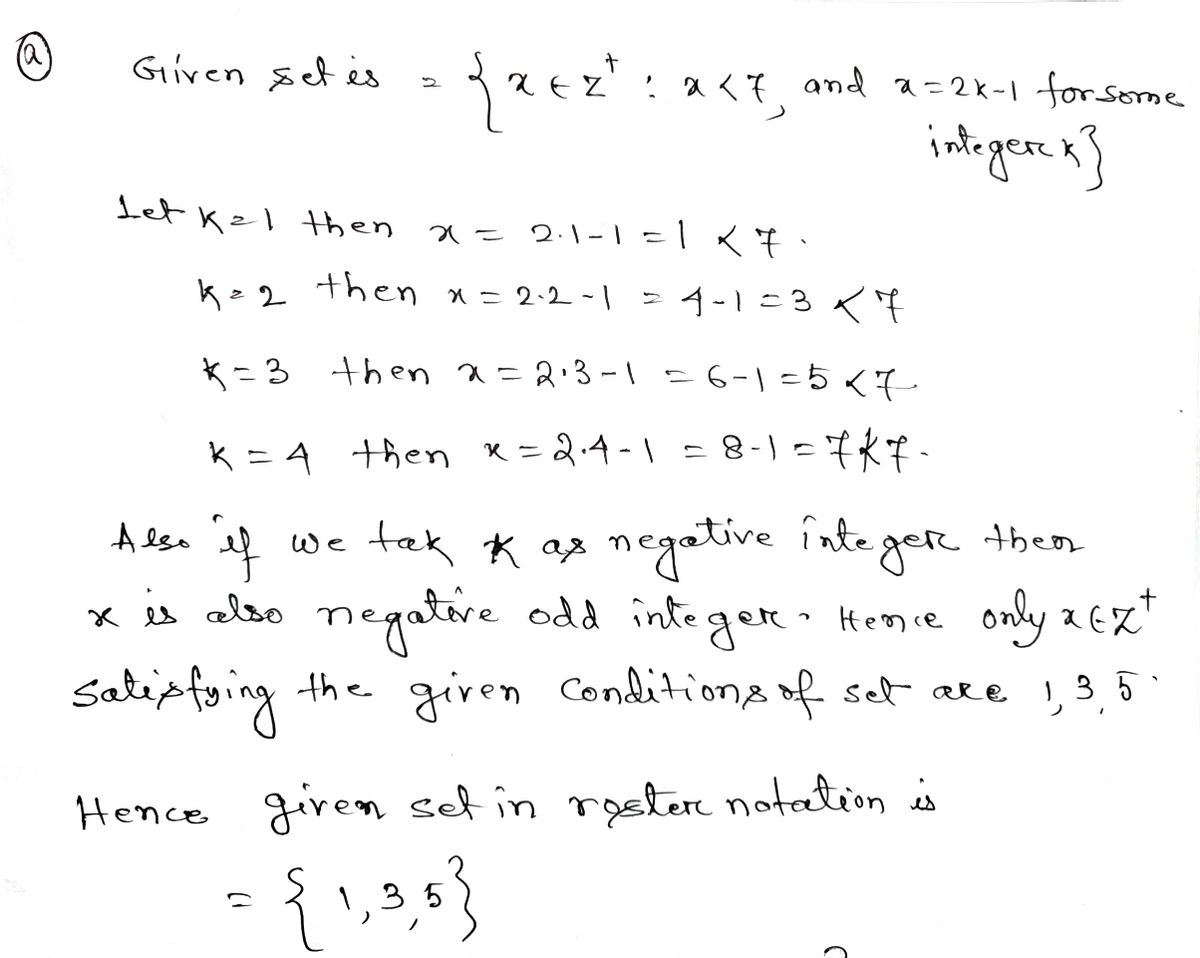 (a) Given set is = { x ∈ Z⁺ : x < 7, and x = 2k-1 for some
integer k }
Let k = 1 then x = 2·1-1 = 1 < 7.
k = 2 then x = 2·2-1 = 4-1 = 3 < 7
k = 3 then x = 2·3-1 = 6-1 = 5 < 7
k = 4 then x = 2·4-1 = 8-1 = 7 ≮ 7.
Also if we tak k as negative integer then
x is also negative odd integer. Hence only x ∈ Z⁺
satisfying the given conditions of set are 1, 3, 5.
Hence given set in roster notation is
= { 1, 3, 5 }